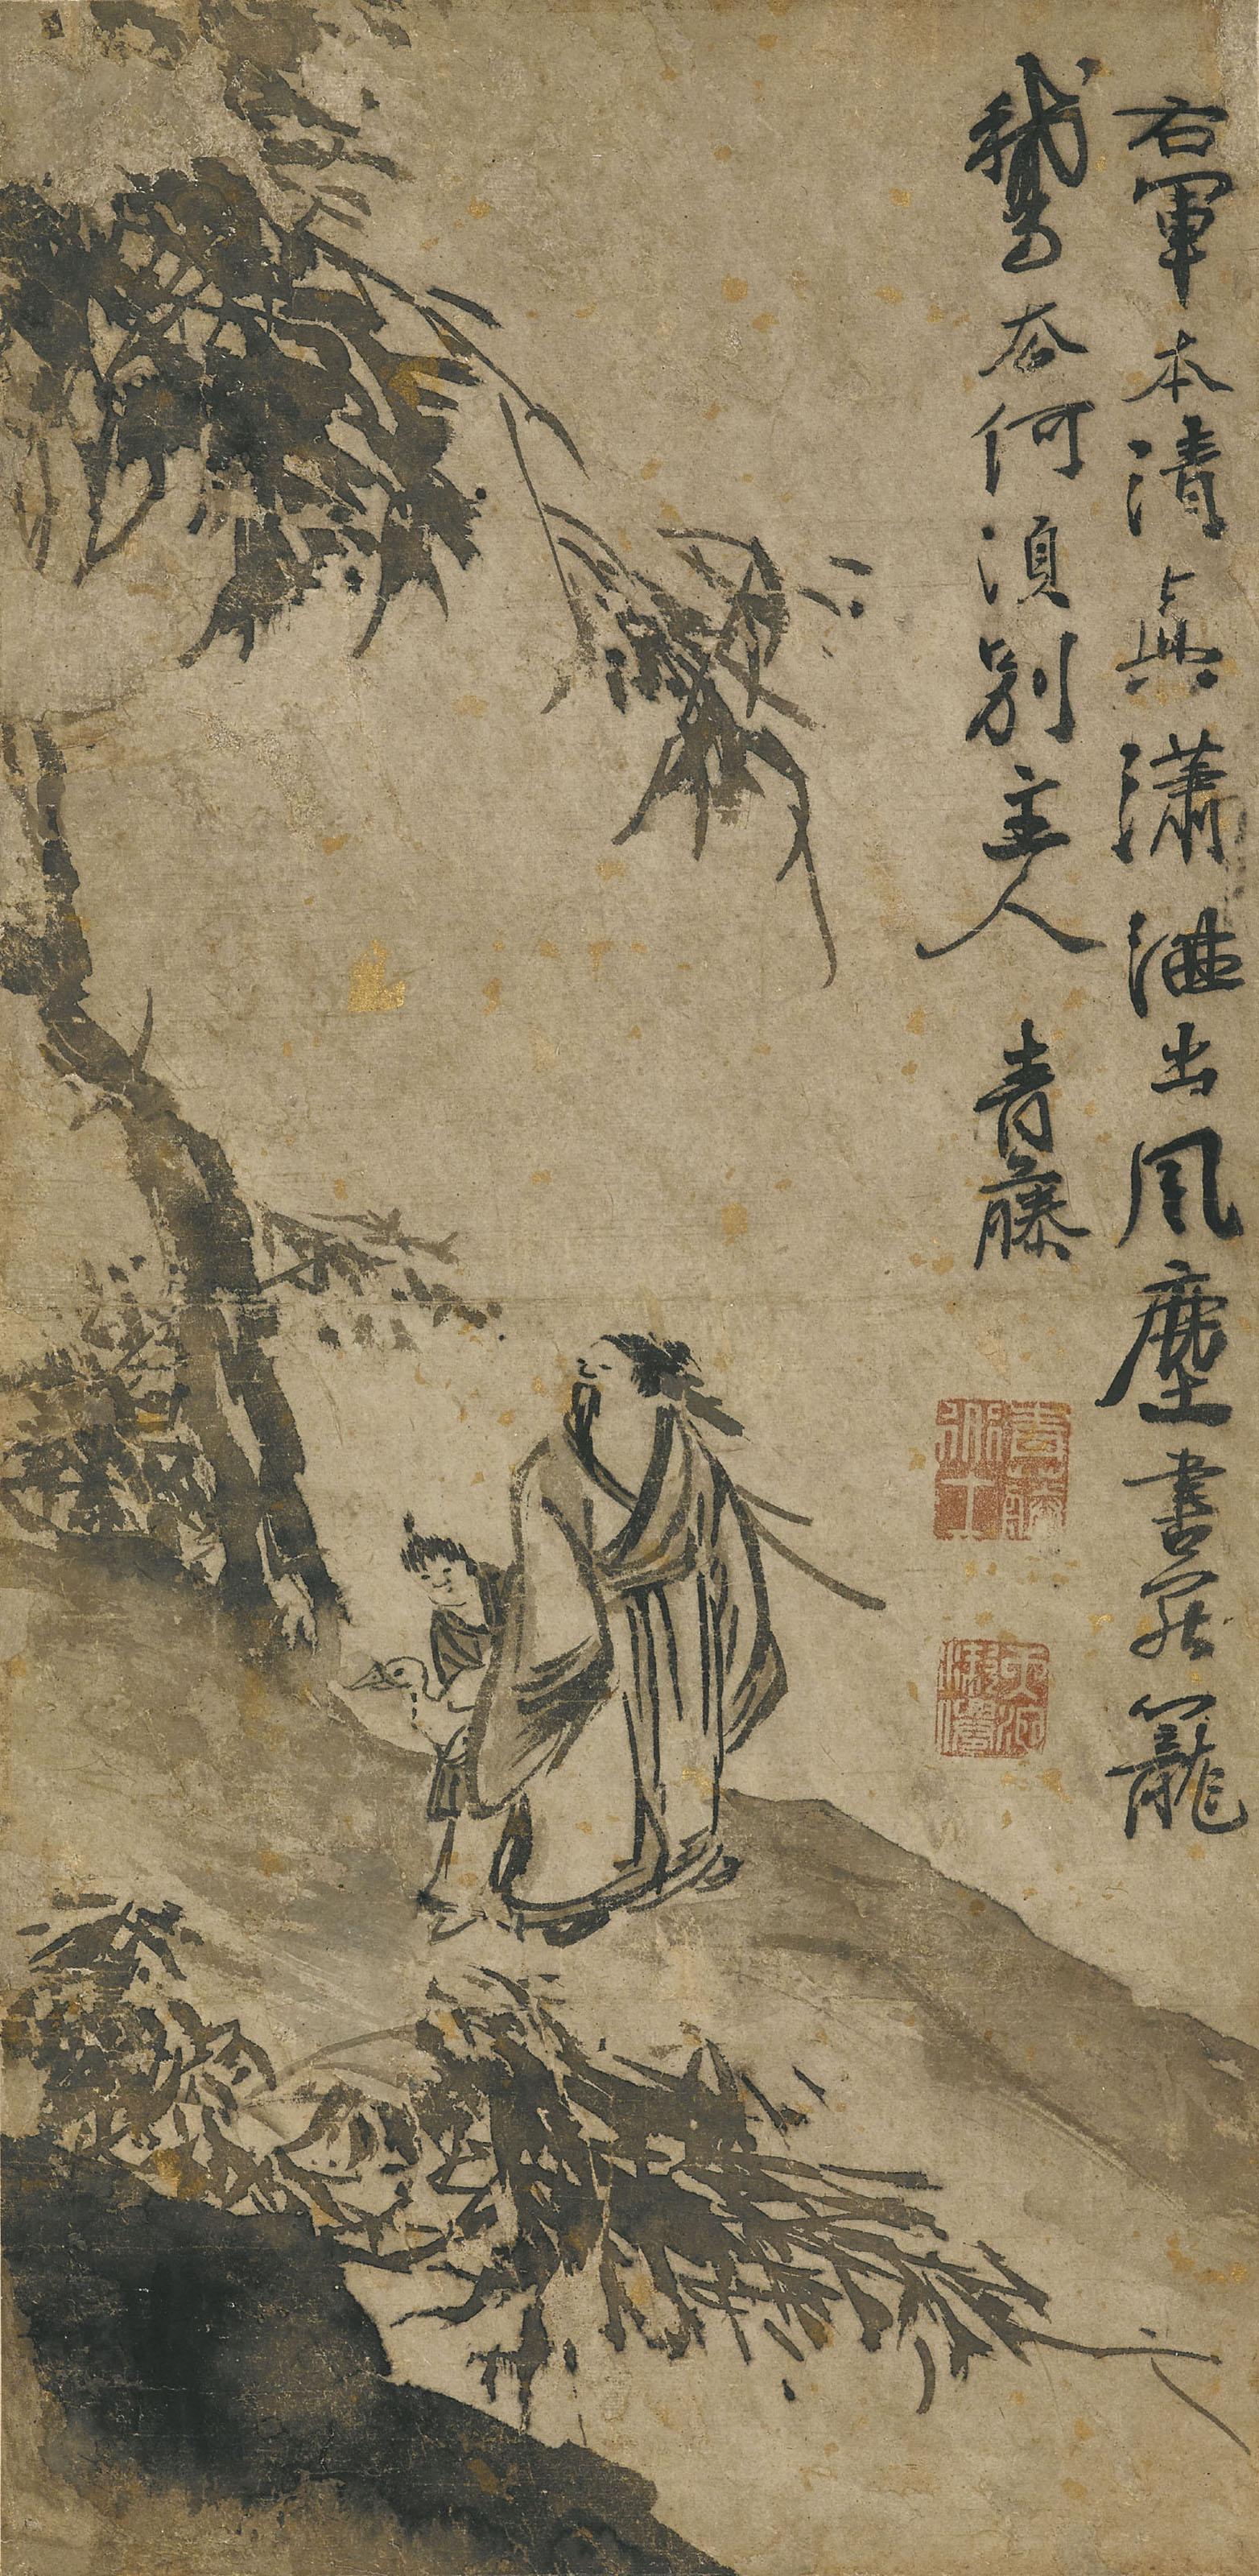 右軍本清真瀟洒出風塵書罷籠
鵞去何湏別主人 青藤
青藤道士
天池漱僊